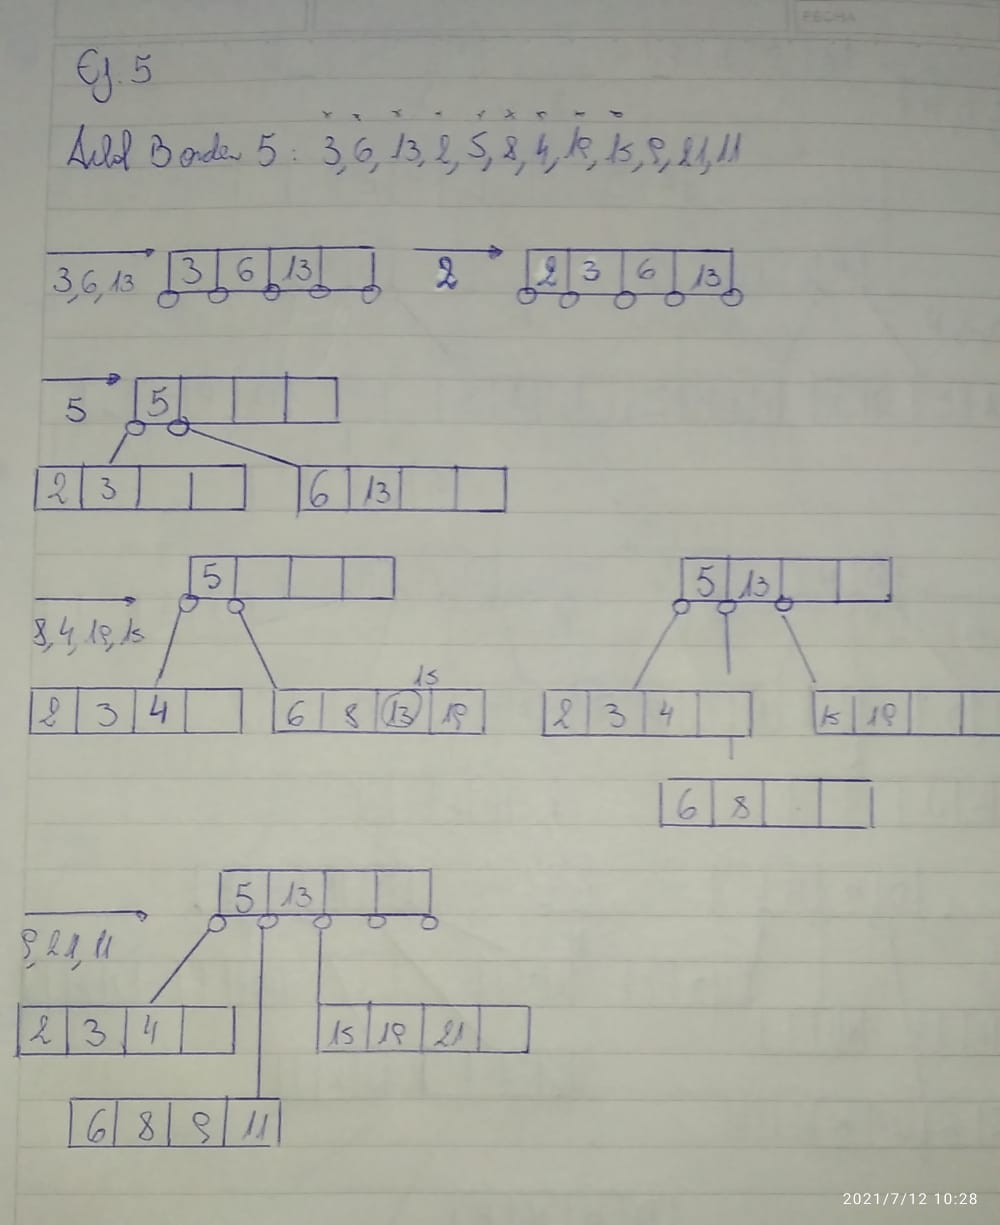 FECHA
Ej. 5
Arbol B orden 5: 3, 6, 13, 2, 5, 8, 4, 19, 15, 9, 21, 11
3, 6, 13 3 6 13 2 2 3 6 13
5 5
2 3 6 13
5 5 13
8, 4, 19, 15
15
2 3 4 6 8 13 19 2 3 4 15 19
6 8
5 13
9, 21, 11
2 3 4 15 19 21
6 8 9 11
2021/7/12 10:28